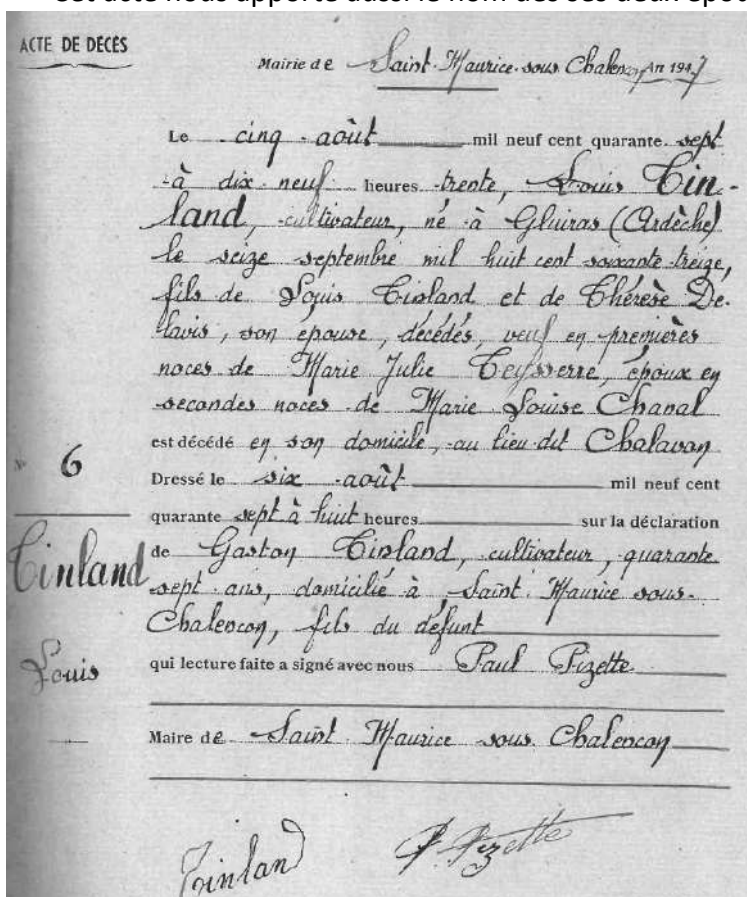 ACTE DE DÉCÈS
Mairie de Saint-Maurice-sous-Chalencon An 1947
Le cinq août mil neuf cent quarante sept
à dix neuf heures trente, Louis Tin-
land, cultivateur, né à Gluiras (Ardèche)
le seize septembre mil huit cent soixante-treize,
fils de Louis Tinland et de Thérèse De-
lavis, son épouse, décédés, veuf en premières
noces de Marie Julie Teysserre, époux en
secondes noces de Marie Louise Chanal
est décédé en son domicile, au lieu dit Chalavon
N° 6
Dressé le six août mil neuf cent
quarante sept à huit heures sur la déclaration
Tinland
de Gaston Tinland, cultivateur, quarante
sept ans, domicilié à Saint Maurice sous-
Chalencon, fils du défunt
Louis
qui lecture faite a signé avec nous Paul Pizette
Maire de Saint Maurice sous Chalencon
Tinland P. Pizette